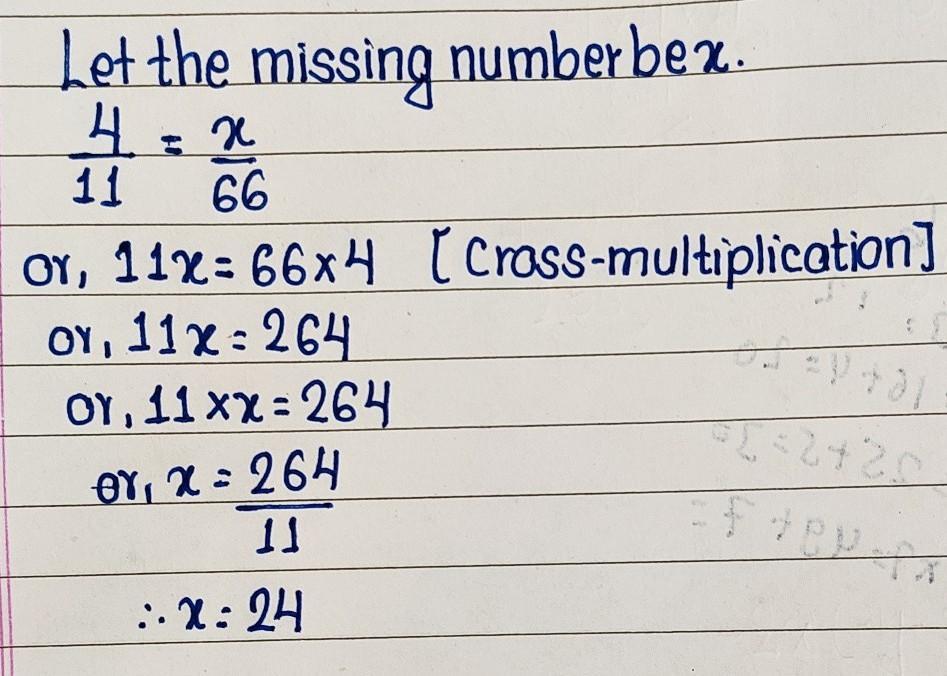 Let the missing number be x.
4/11 = x/66
or, 11x = 66×4 [Cross-multiplication]
or, 11x = 264
or, 11×x = 264
or, x = 264/11
∴ x = 24